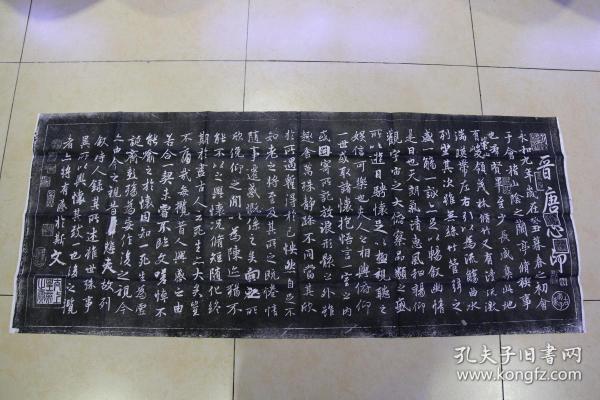 晋唐心印
永和九年歲在癸丑暮春之初會
于會稽山陰之蘭亭脩禊事
也群賢畢至少長咸集此地
有崇山峻領茂林脩竹又有清流激
湍暎帶左右引以為流觴曲水
列坐其次雖無絲竹管弦之
盛一觴一詠亦足以暢叙幽情
是日也天朗氣清惠風和暢仰
觀宇宙之大俯察品類之盛
所以遊目騁懷足以極視聽之
娛信可樂也夫人之相與俯仰
一世或取諸懷抱悟言一室之內
或因寄所託放浪形骸之外雖
趣舍萬殊靜躁不同當其欣
於所遇暫得於己怏然自足不
知老之將至及其所之既惓情
隨事遷感慨係之矣向之所
欣俛仰之閒以為陳迹猶不
能不以之興懷況脩短隨化終
期於盡古人云死生亦大矣豈
不痛哉每攬昔人興感之由
若合一契未嘗不臨文嗟悼不
能喻之於懷固知一死生為虛
誕齊彭殤為妄作後之視今
亦由今之視昔悲夫故列
叙時人錄其所述雖世殊事
異所以興懷其致一也後之攬
者亦將有感於斯文
孔夫子旧书网
www.kongfz.com